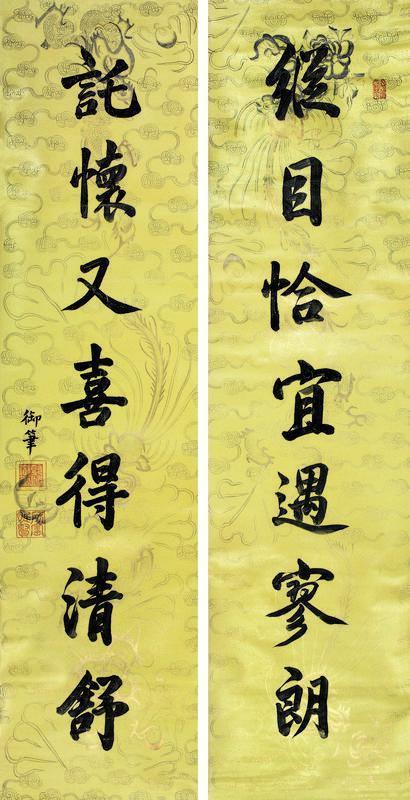 縱目恰宜遇寥朗
託懷又喜得清舒
御筆